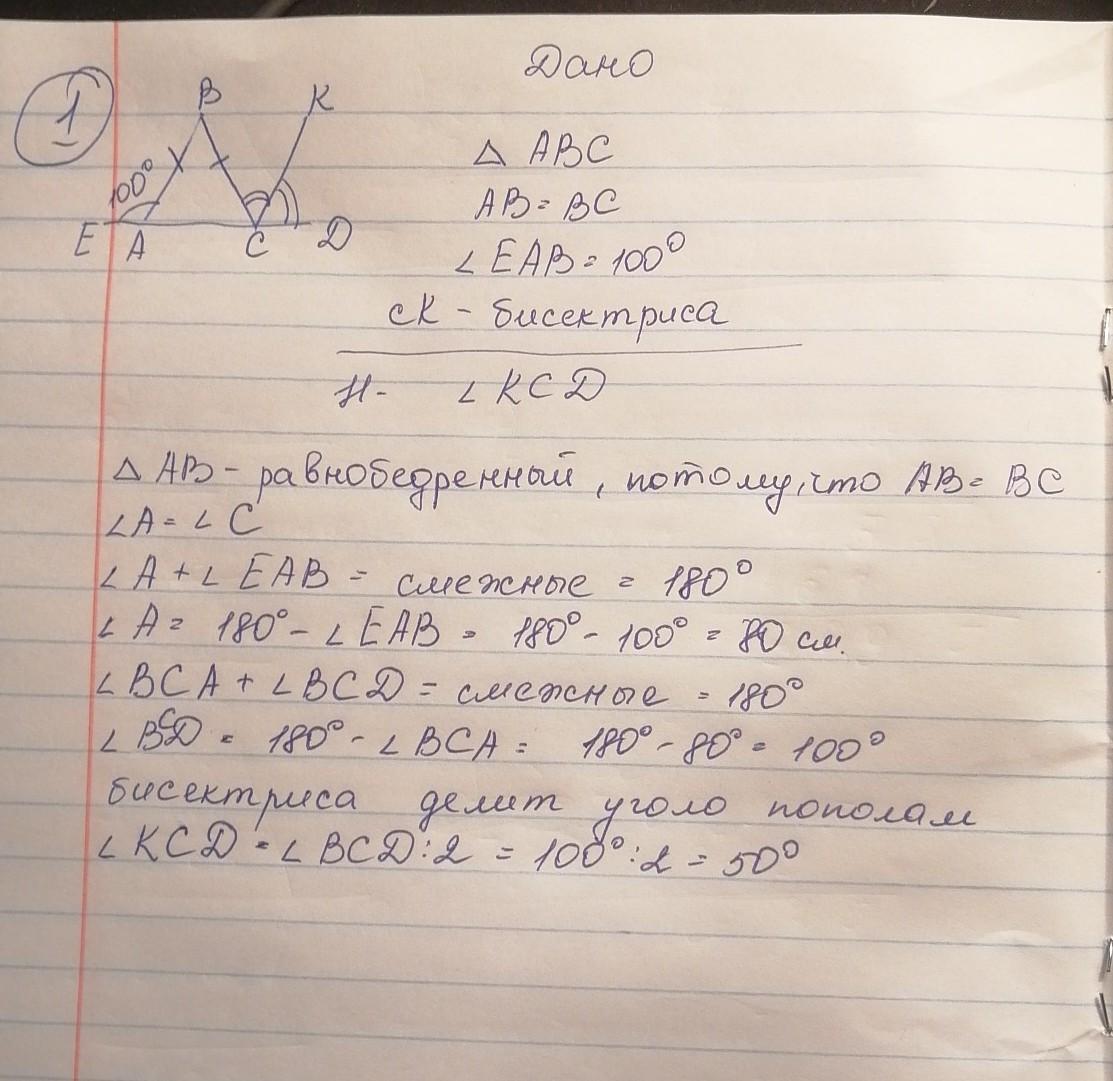 1
Дано
B K
100°
E A C D
△ ABC
AB = BC
∠ EAB = 100°
CK - бисектриса
Н- ∠ KCD
△ AB - равнобедренный, потому, что AB = BC
∠A = ∠ C
∠ A + ∠ EAB = смежные = 180°
∠ A = 180° - ∠ EAB = 180° - 100° = 80 см.
∠ BCA + ∠BCD = смежные = 180°
∠ BCD = 180° - ∠ BCA = 180° - 80° = 100°
бисектриса делит уголо пополам
∠ KCD = ∠ BCD : 2 = 100° : 2 = 50°